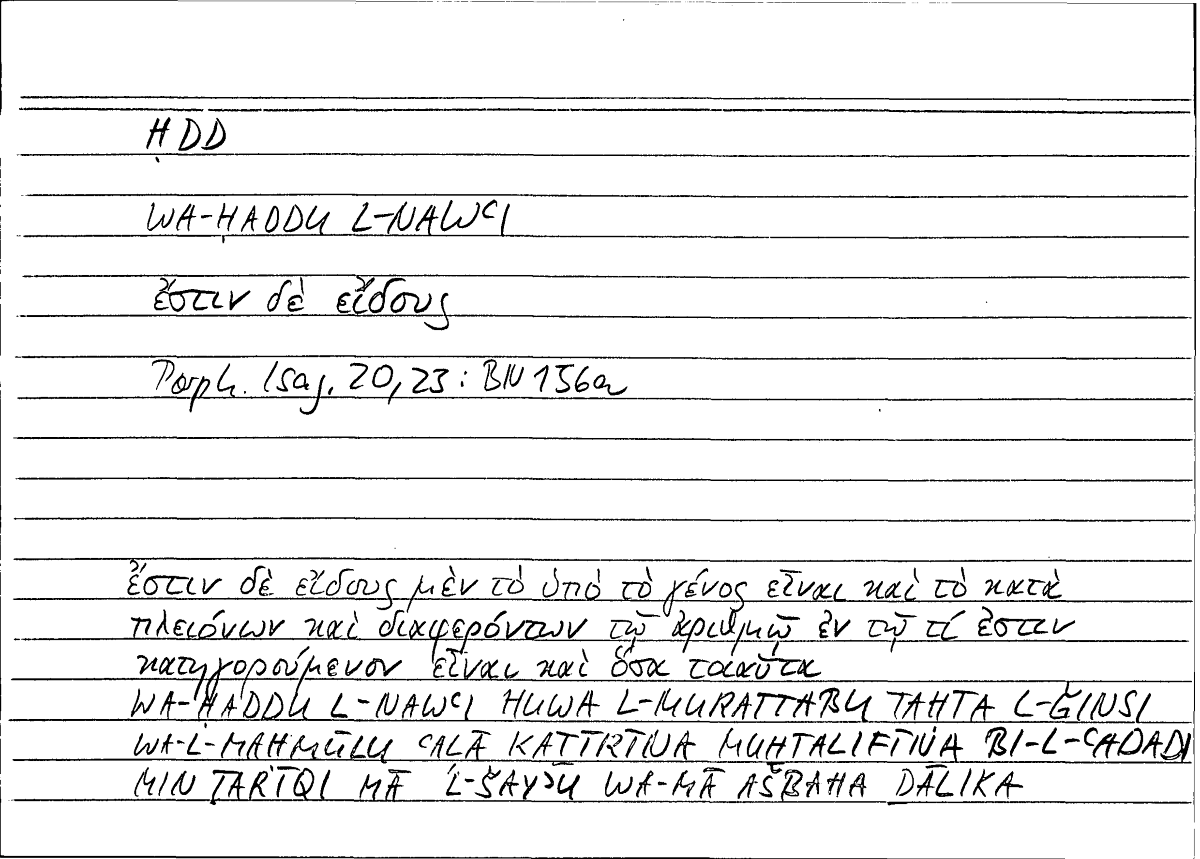 ḤDD
WA-ḤADDU L-NAWʿI
ἔστιν δὲ εἴδους
Porph. Isag. 20,23: BN 156a
ἔστιν δὲ εἴδους μὲν τὸ ὑπὸ τὸ γένος εἶναι καὶ τὸ κατὰ
πλειόνων καὶ διαφερόντων τῷ ἀριθμῷ ἐν τῷ τί ἐστιν
κατηγορούμενον εἶναι καὶ ὅσα τοιαῦτα
WA-ḤADDU L-NAWʿI HUWA L-MURATTABU TAḤTA L-ǦINSI
WA-L-MAḤMŪLU ʿALĀ KAṮĪRĪNA MUḪTALIFĪNA BI-L-ʿADADI
MIN ṬARĪQI MĀ L-ŠAYʾU WA-MĀ AŠBAHA ḎĀLIKA